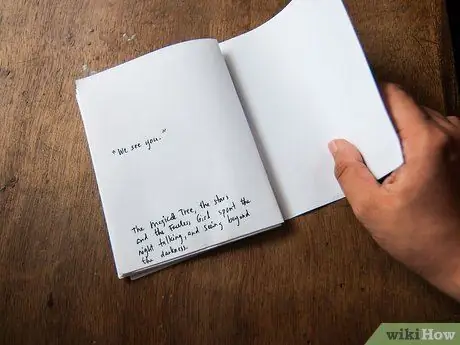 "We see you."
The Magical Tree, the stars
and the Fearless Girl spent the
night talking, and seeing beyond
the darkness.
wikiHow